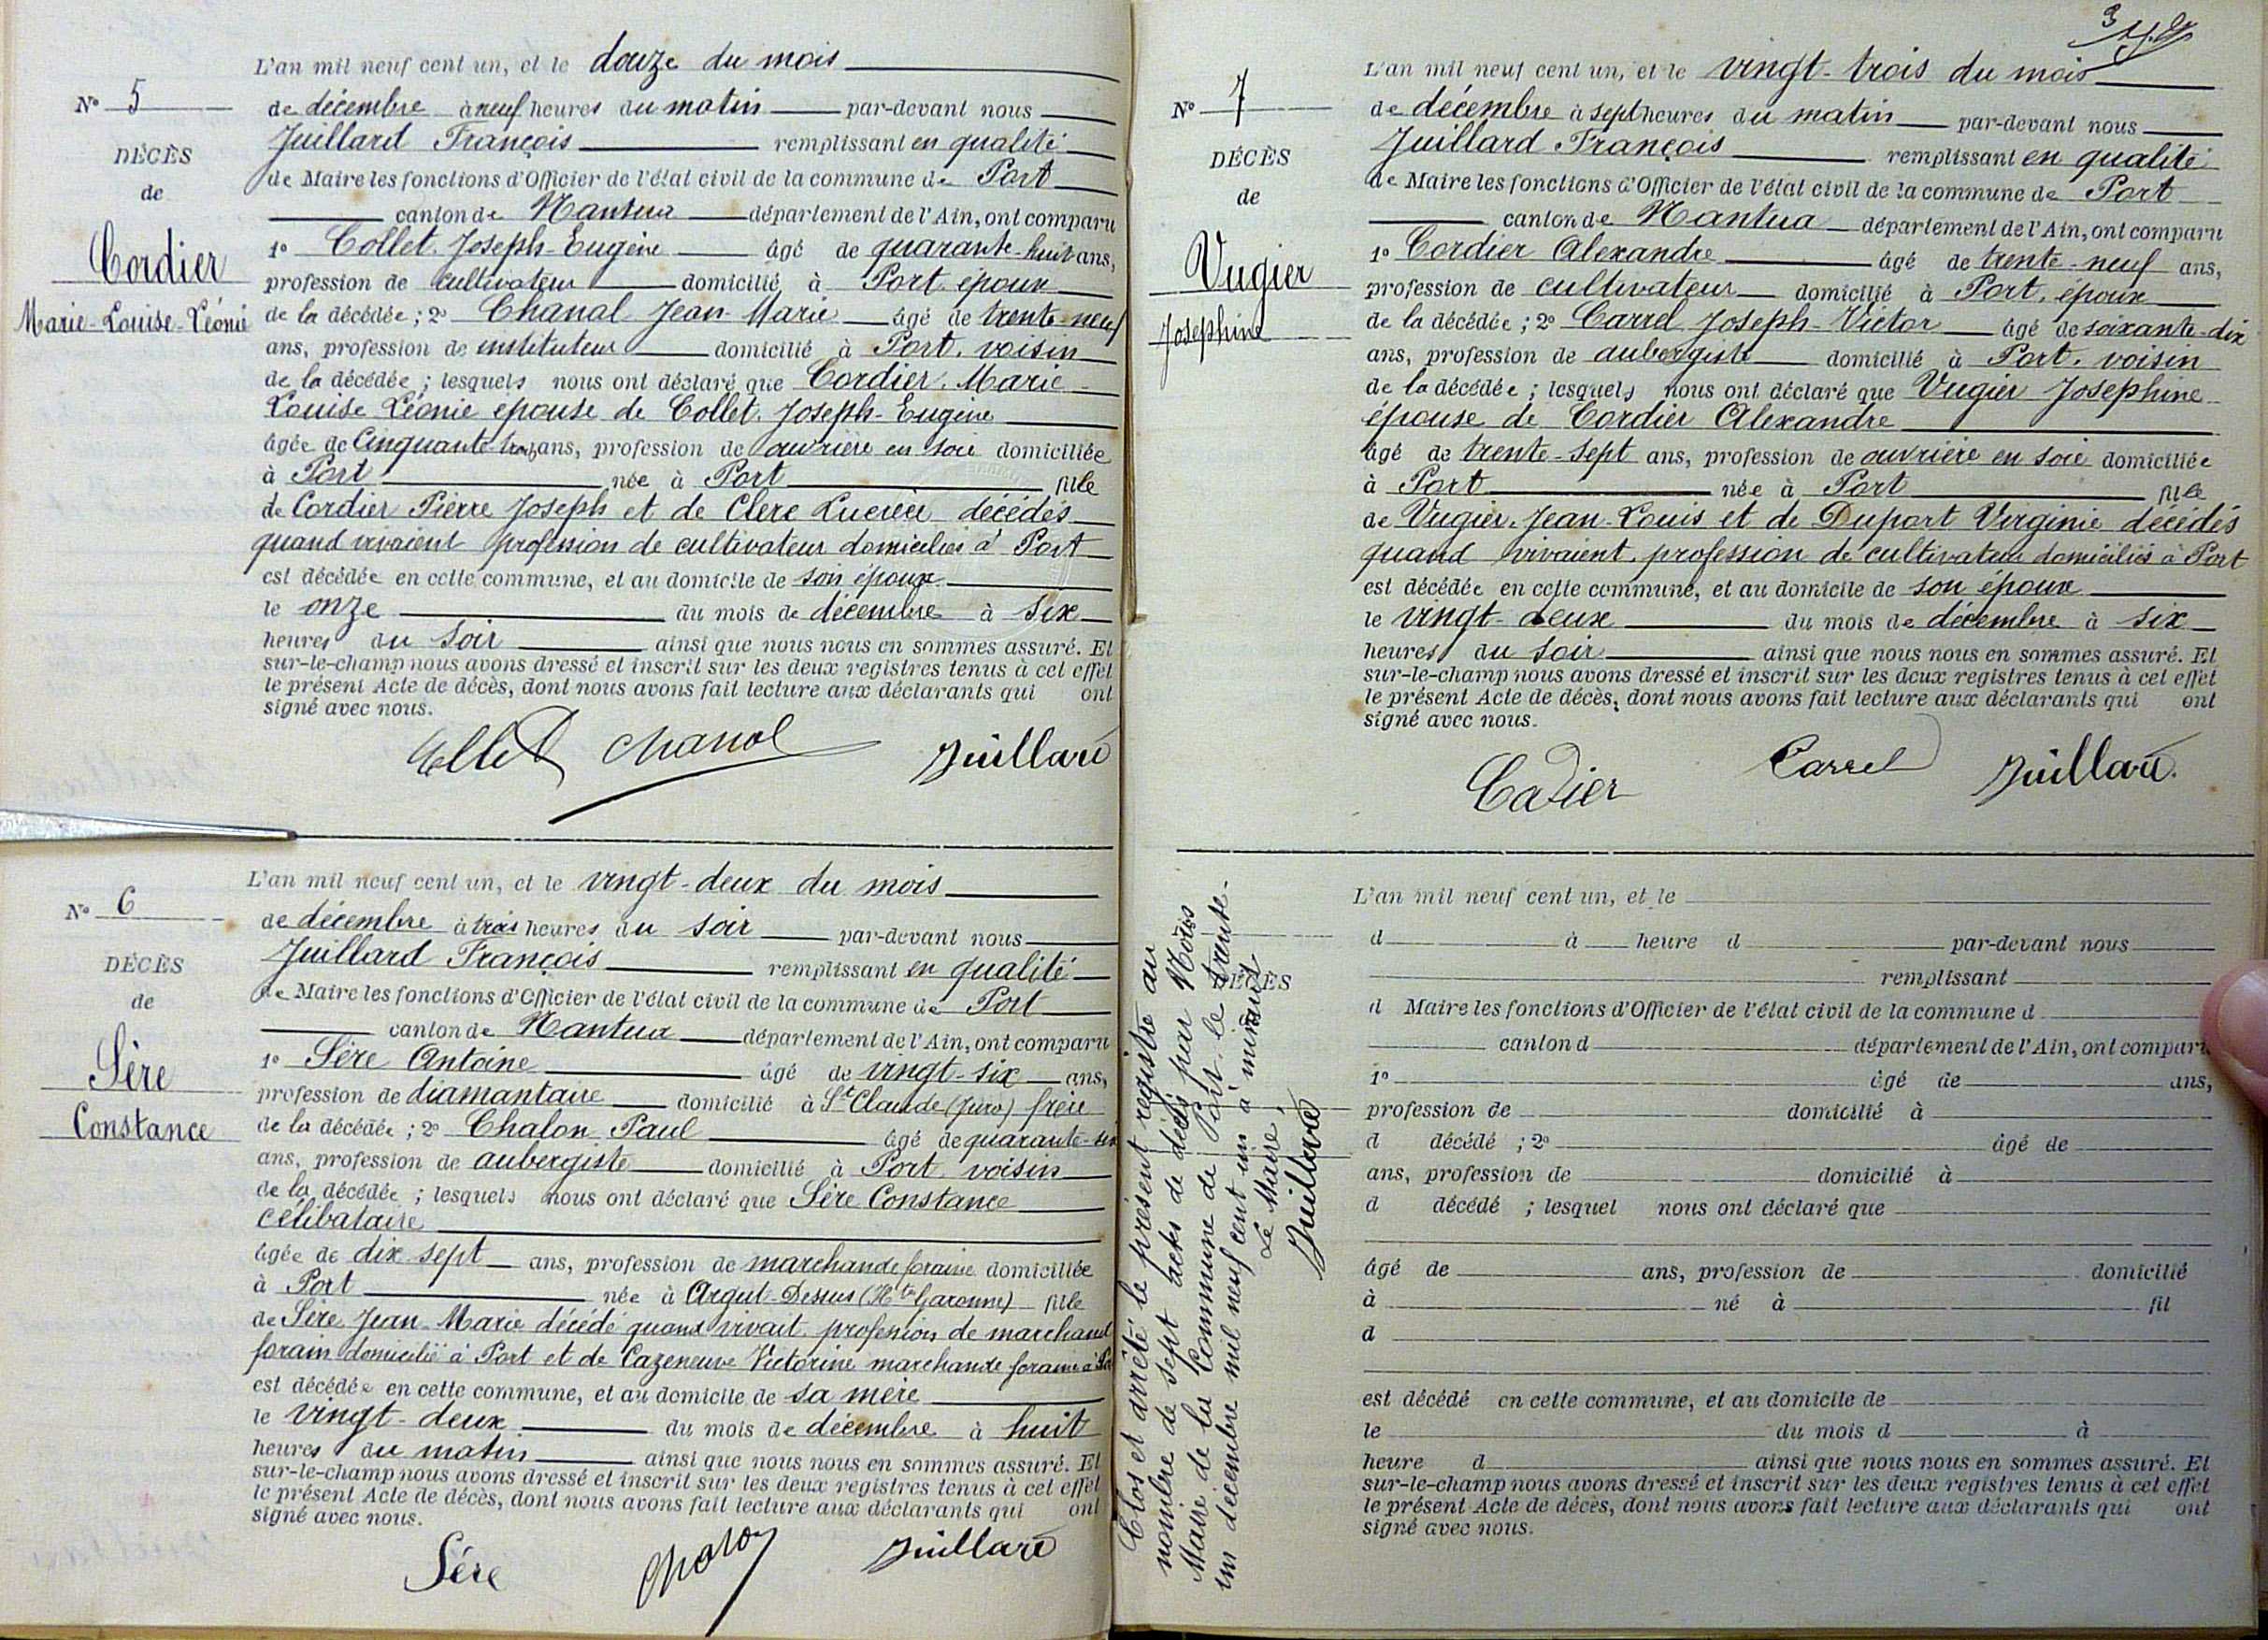 N° 5
DÉCÈS
de
Cordier
Marie-Louise-Léonie
L'an mil neuf cent un, et le douze du mois
de décembre à neuf heures du matin par-devant nous
Juillard François remplissant en qualité
de Maire les fonctions d'Officier de l'état civil de la commune de Port
canton de Nantua département de l'Ain, ont comparu
1° Collet, Joseph-Eugène âgé de quarante-huit ans,
profession de cultivateur domicilié à Port, époux
de la décédée ; 2° Chanal Jean-Marie âgé de trente-neuf
ans, profession de instituteur domicilié à Port, voisin
de la décédée ; lesquels nous ont déclaré que Cordier, Marie-
Louise Léonie épouse de Collet, Joseph-Eugène
âgée de Cinquante-trois ans, profession de ouvrière en soie domiciliée
à Port née à Port fille
de Cordier Pierre Joseph et de Clerc Lucrèce décédés
quand vivaient profession de cultivateur domiciliés à Port
est décédée en cette commune, et au domicile de son époux
le onze du mois de décembre à six
heures du soir ainsi que nous nous en sommes assuré. Et
sur-le-champ nous avons dressé et inscrit sur les deux registres tenus à cet effet
le présent Acte de décès, dont nous avons fait lecture aux déclarants qui ont
signé avec nous.
Collet Chanal Juillard
N° 6
DÉCÈS
de
Sère
Constance
L'an mil neuf cent un, et le vingt-deux du mois
de décembre à trois heures du soir par-devant nous
Juillard François remplissant en qualité
de Maire les fonctions d'Officier de l'état civil de la commune de Port
canton de Nantua département de l'Ain, ont comparu
1° Sère Antoine âgé de vingt-six ans,
profession de diamantaire domicilié à St Claude (Jura) frère
de la décédée ; 2° Chalon Paul âgé de quarante-six
ans, profession de aubergiste domicilié à Port voisin
de la décédée ; lesquels nous ont déclaré que Sère Constance
célibataire
âgée de dix sept ans, profession de marchande foraine domiciliée
à Port née à Argut-Dessus (Hte Garonne) fille
de Sère Jean-Marie décédé quand vivait profession de marchand
forain domicilié à Port et de Cazeneuve Victorine marchande foraine à
est décédée en cette commune, et au domicile de sa mère
le vingt-deux du mois de décembre à huit
heures du matin ainsi que nous nous en sommes assuré. Et
sur-le-champ nous avons dressé et inscrit sur les deux registres tenus à cet effet
le présent Acte de décès, dont nous avons fait lecture aux déclarants qui ont
signé avec nous.
Sére Chalon Juillard
N° 7
DÉCÈS
de
Vugier
Josephine
L'an mil neuf cent un, et le vingt-trois du mois
de décembre à sept heures du matin par-devant nous
Juillard François remplissant en qualité
de Maire les fonctions d'Officier de l'état civil de la commune de Port
canton de Nantua département de l'Ain, ont comparu
1° Cordier Alexandre âgé de trente-neuf ans,
profession de cultivateur domicilié à Port, époux
de la décédée ; 2° Carrel Joseph-Victor âgé de soixante-dix
ans, profession de aubergiste domicilié à Port, voisin
de la décédée ; lesquels nous ont déclaré que Vugier Josephine
épouse de Cordier Alexandre
âgé de trente-sept ans, profession de ouvrière en soie domiciliée
à Port née à Port fille
de Vugier, Jean-Louis et de Duport Virginie décédés
quand vivaient, profession de cultivateur domiciliés à Port
est décédée en cette commune, et au domicile de son époux
le vingt-deux du mois de décembre à six
heures du soir ainsi que nous nous en sommes assuré. Et
sur-le-champ nous avons dressé et inscrit sur les deux registres tenus à cet effet
le présent Acte de décès, dont nous avons fait lecture aux déclarants qui ont
signé avec nous.
Cordier Carrel Juillard
Clos et arrêté le présent registre au
nombre de sept actes de décès par Nous
Maire de la Commune de Port, le trente-
un décembre mil neuf cent un à minuit
Le Maire
Juillard
DÉCÈS
L'an mil neuf cent un, et le
d à heure d par-devant nous
remplissant
d Maire les fonctions d'Officier de l'état civil de la commune d
canton d département de l'Ain, ont comparu
1° âgé de ans,
profession de domicilié à
d décédé ; 2° âgé de
ans, profession de domicilié à
d décédé ; lesquel nous ont déclaré que
âgé de ans, profession de domicilié
à né à fil
d
est décédé en cette commune, et au domicile de
le du mois d à
heure d ainsi que nous nous en sommes assuré. Et
sur-le-champ nous avons dressé et inscrit sur les deux registres tenus à cet effet
le présent Acte de décès, dont nous avons fait lecture aux déclarants qui ont
signé avec nous.